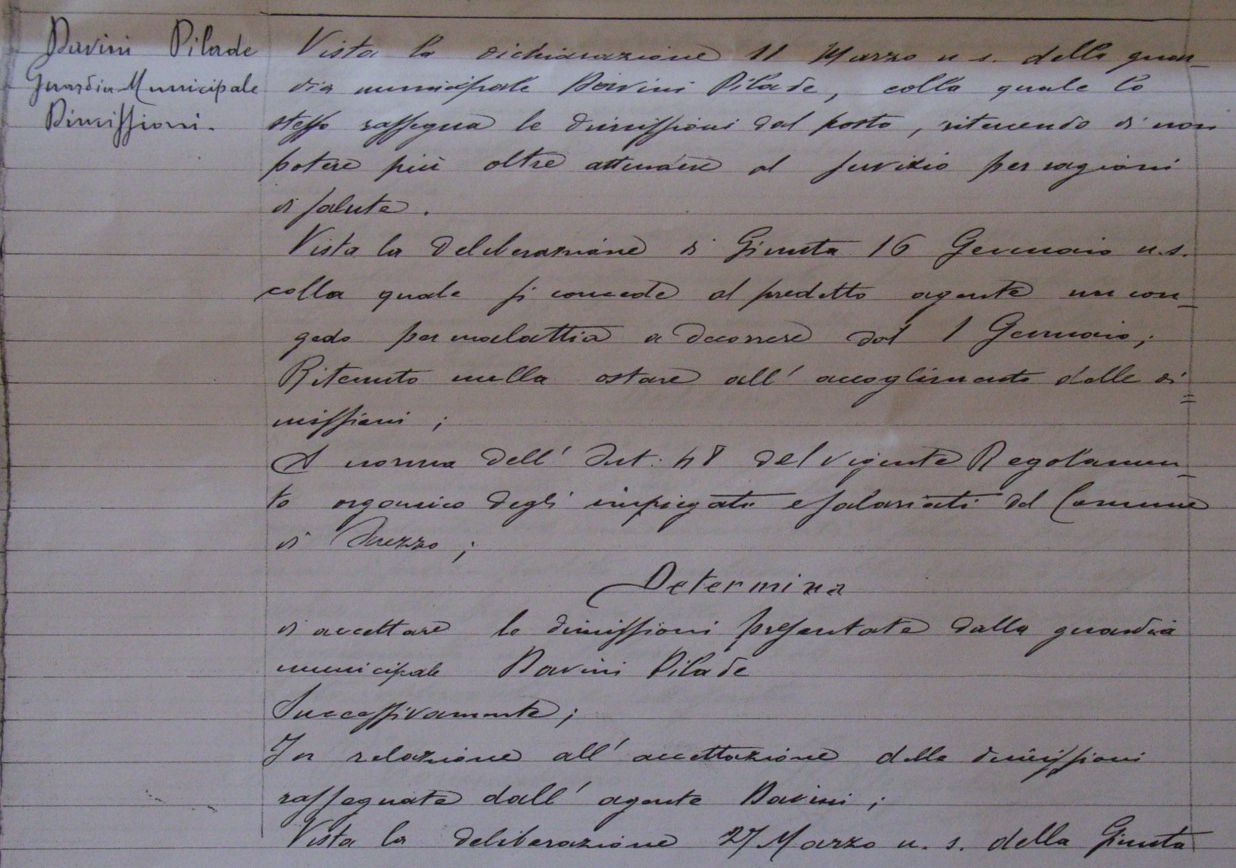 Davini Pilade
Guardia Municipale
Dimissioni.
Vista la dichiarazione 11 Marzo u. s. della guar-
dia municipale Davini Pilade, colla quale lo
stesso rassegna le dimissioni dal posto, ritenendo di non
potere più oltre attendere al servizio per ragioni
di salute.
Vista la deliberazione di Giunta 16 Gennaio u.s.
colla quale si concede al predetto agente un con-
gedo per malattia a decorrere dal 1 Gennaio;
Ritenuto nulla ostare all' accoglimento delle di=
missioni;
A norma dell' Art: 48 del vigente Regolamen-
to organico degli impiegati e salariati del Comune
di Arezzo;
Determina
di accettare le dimissioni presentate dalla guardia
municipale Davini Pilade
Successivamente;
In relazione all' accettazione delle dimissioni
rassegnate dall' agente Davini;
Vista la deliberazione 27 Marzo u. s. della Giunta